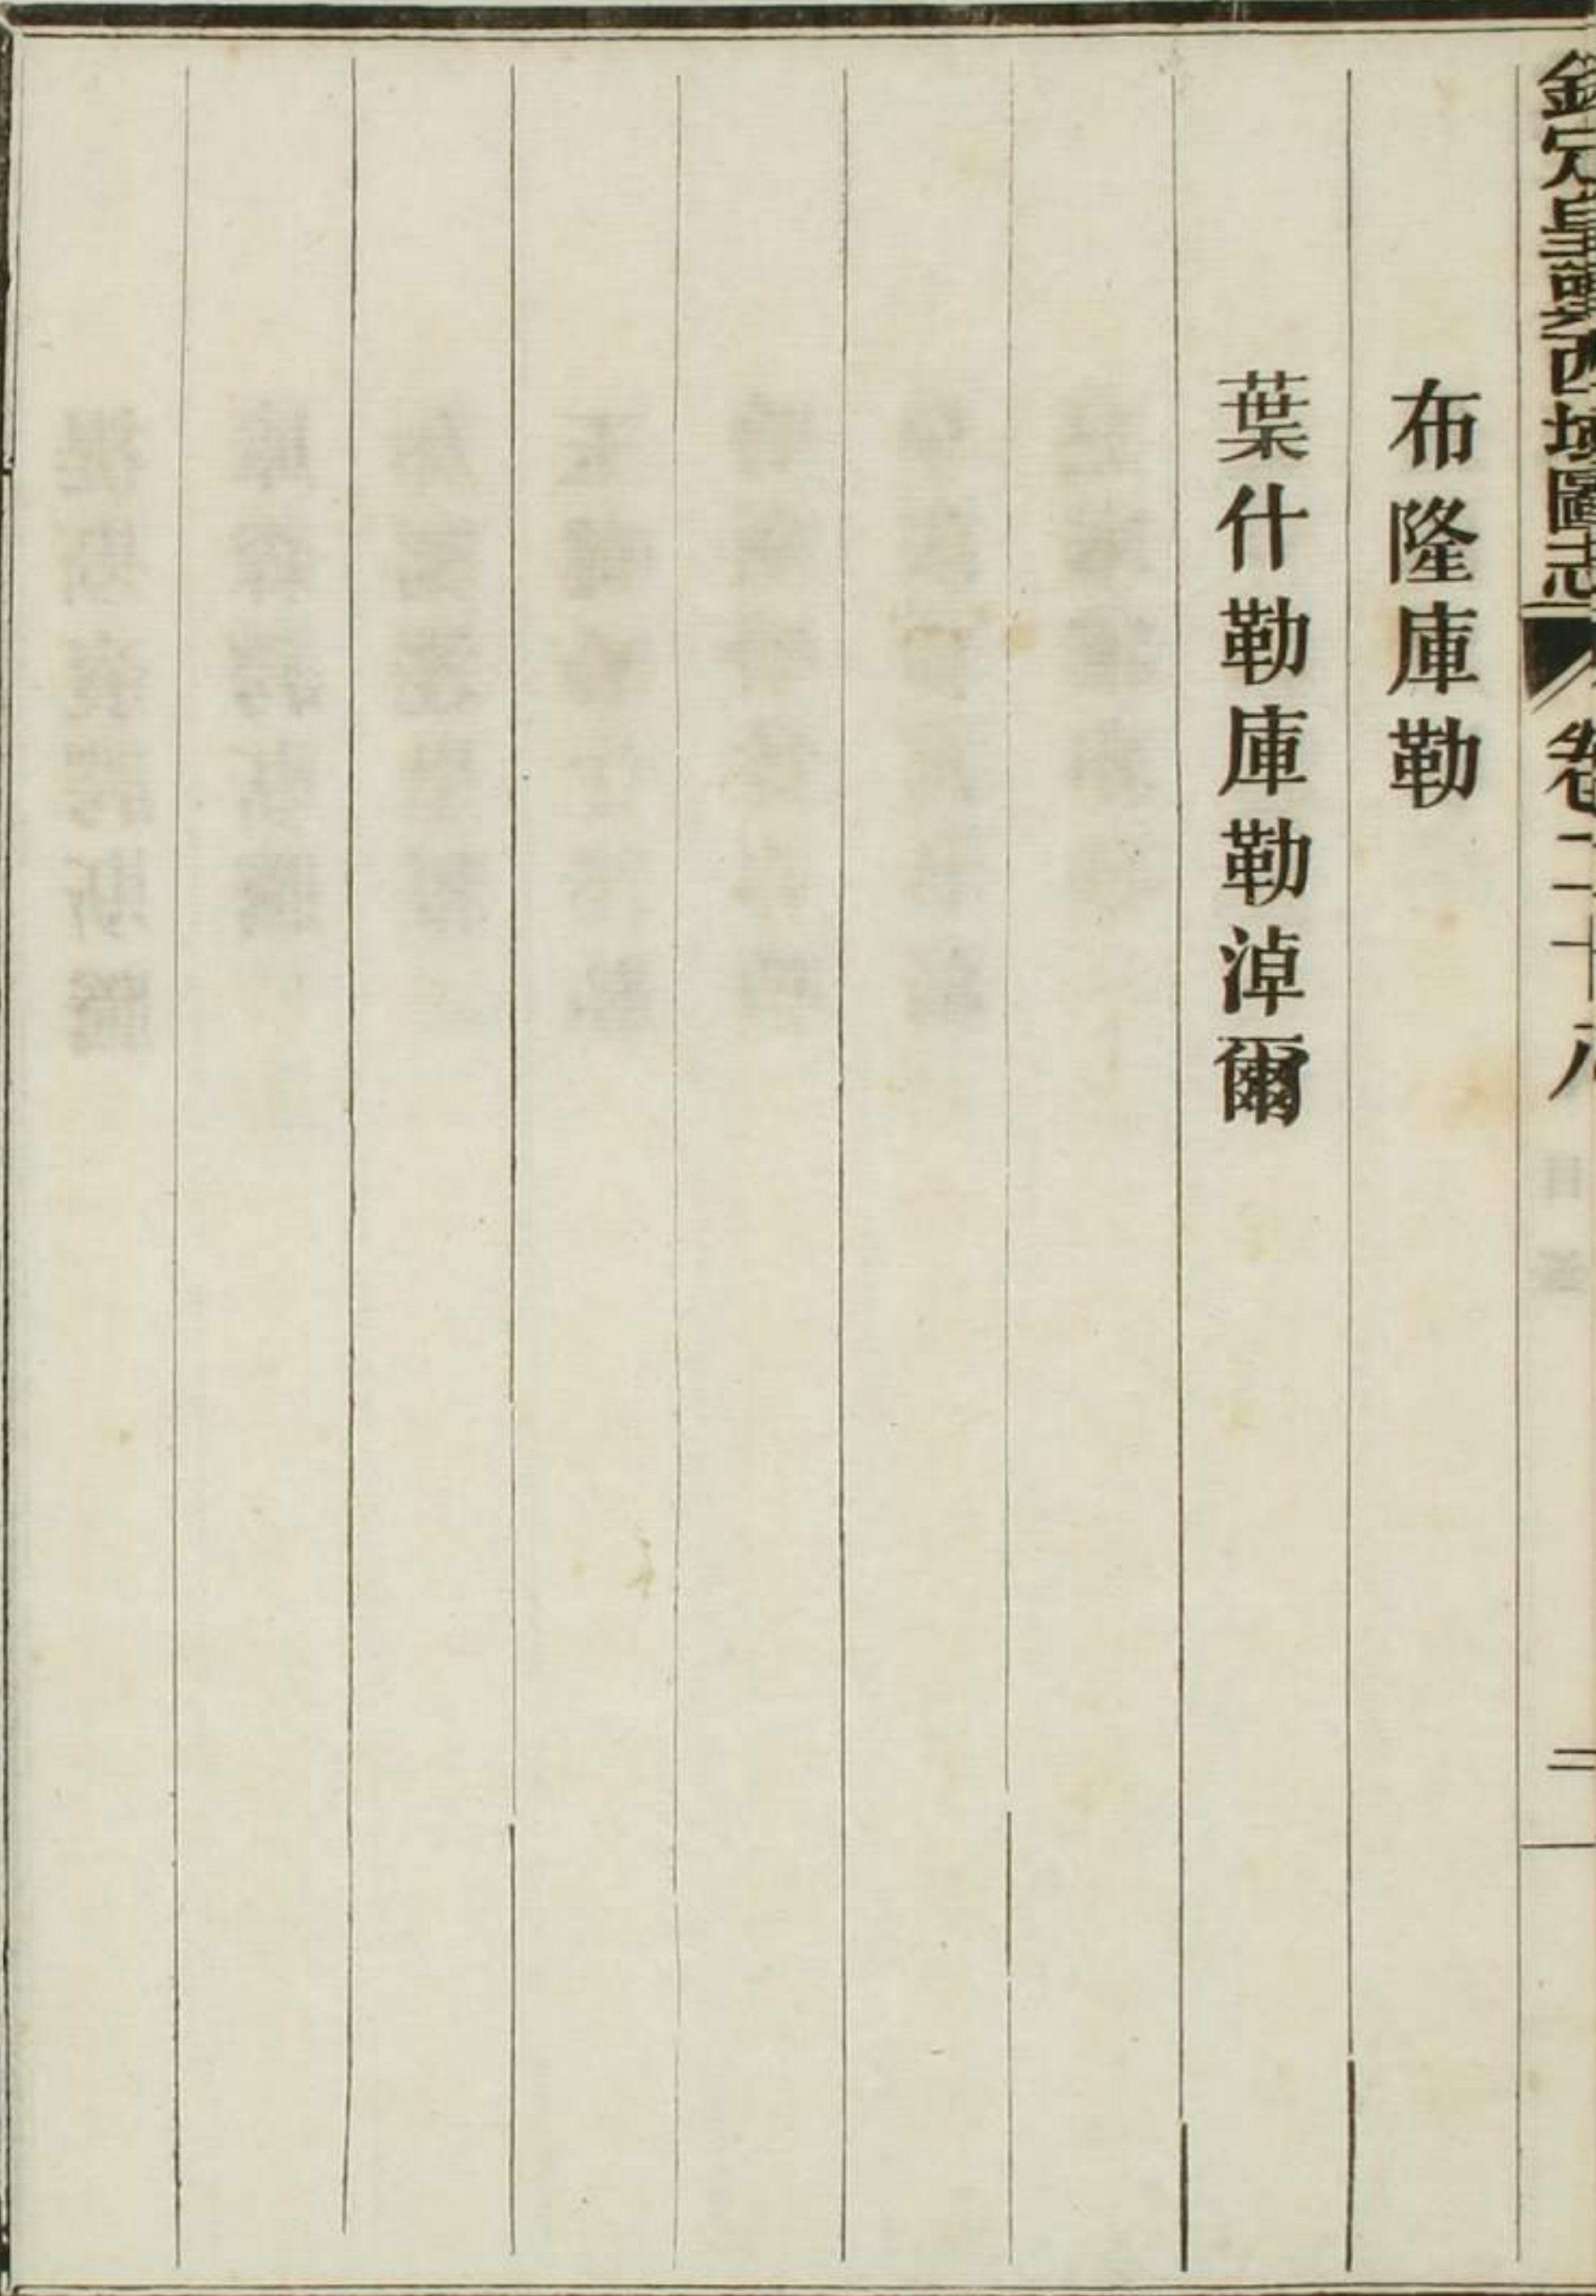 欽定皇輿西域圖志 卷二十八 二
布隆庫勒
葉什勒庫勒淖爾